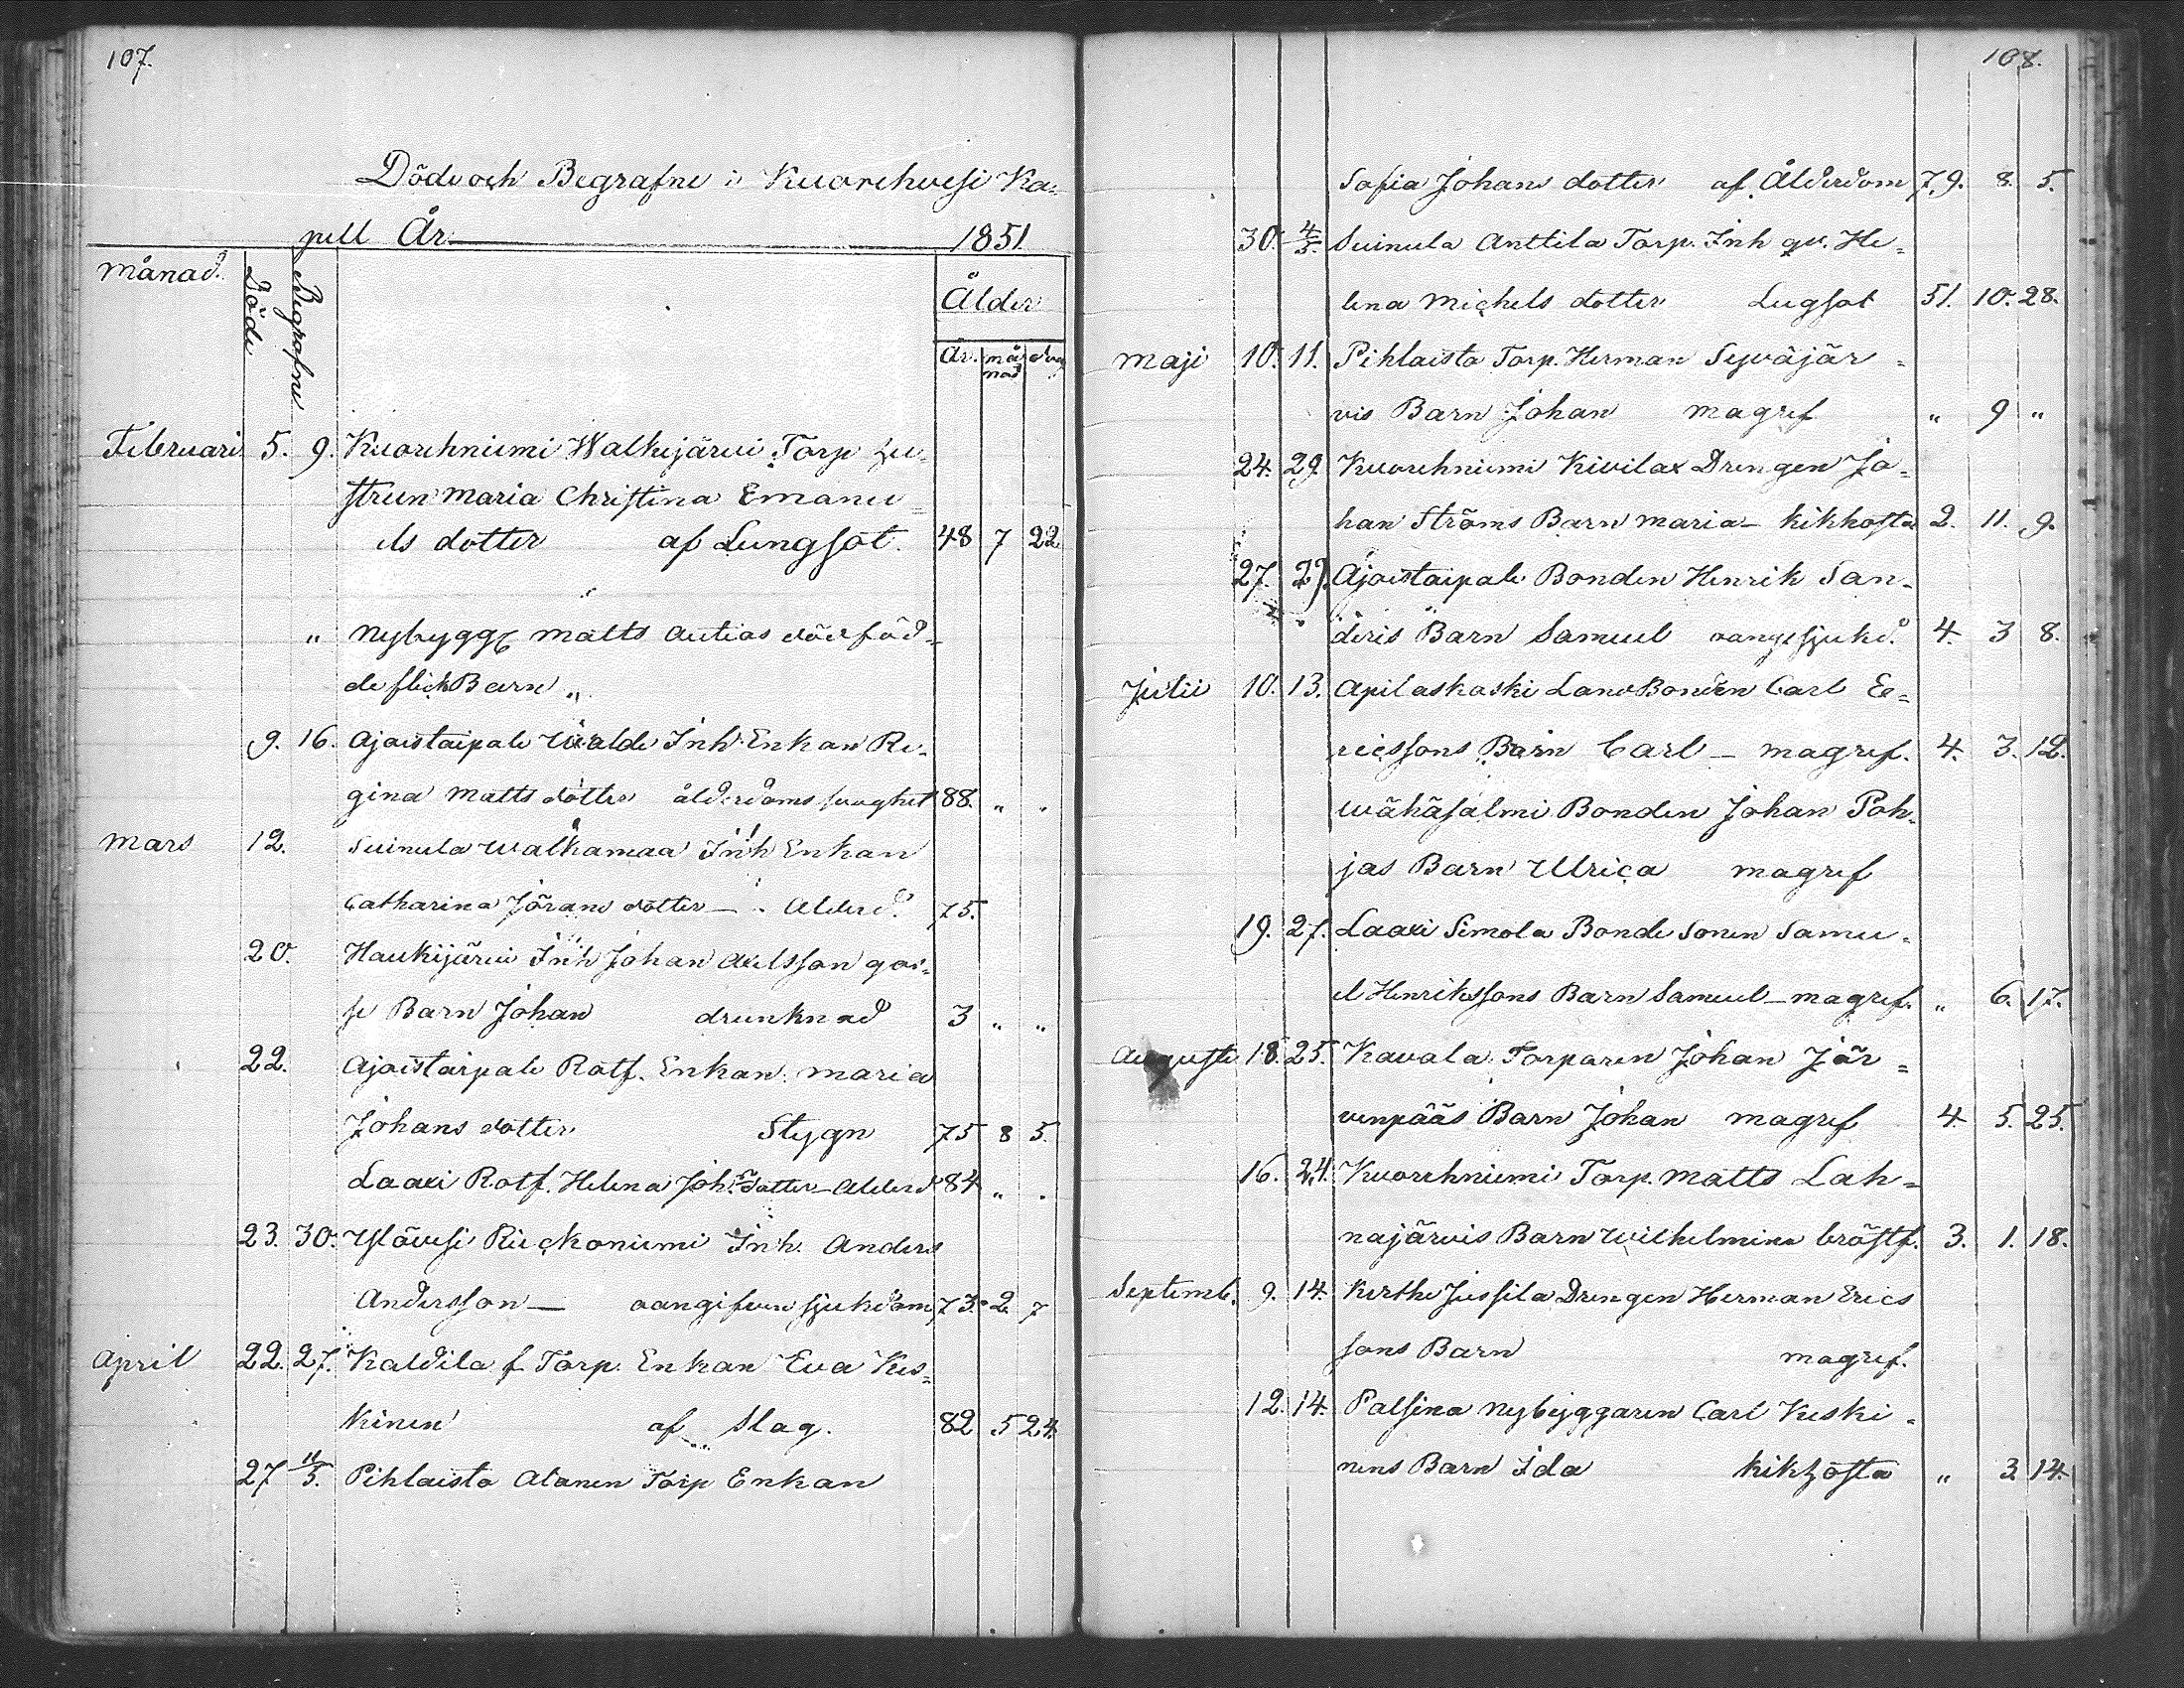 107.
Döde och Begrafne i Kuorehvesi Ka=
pell År 1851
månad. Döde Begrafne Ålder
År. månad dag
Februari 5. 9. Kuorehniemi Walkijärvi Torp hu-
strun Maria Christina Emanu=
els dotter af Lungsot. 48 7 22
" Nybygg matts autios dödföd-
de flickBarn "
9. 16. Ajoistaipale Uvalde Inh. Enkan Re-
gina Matts dotter ålderdoms svaghet 88. " "
Mars 12. Suinula walkamaa Inh Enkan
Catharina Jörans dotter — Alderd. 75.
20. Haukijärvi Inh Johan axelsson goi-
se Barn Johan drunknad 3 " "
22. Ajoistaipale Rotf. Enkan Maria
Johans dotter Stygn 75 8 5.
Laaxi Rotf. Helena Joh. Dotter – Alderd 84 " .
23. 30. Ylövesi Rieckoniemi Inh. Anders
Andersson — oangifven sjukdom 73. 2 7
April 22. 27. Kaldila f Torp. Enkan Eva Kes=
kinen af Slag. 82 5 24.
27 11/5. Pihlaisto Atanen Torp Enkan
108.
Sofia Johans dotter af Ålderdom 79. 8. 5.
30. 4/5. Suinula Anttila Torp. Inh qv. He=
lena Michels dotter Lugsot 51. 10. 28.
Maji 10. 11. Pihlaisto Torp. Herman Syväjär=
vis Barn Johan magref " 9 "
24. 29. Kuorehniemi Kivilax Drengen Jo=
han Ströms Barn Maria — kikhosta 2. 11. 9.
27. 29. Ajoistaipale Bonden Henrik San-
deris Barn Samuel oange sjukd. 4. 3 8.
Julii 10. 13. Apilaskaski LandBonden Carl Ee=
ricssons Barn Carl — magref. 4. 3. 12.
Wähäsalmi Bonden Johan Poh-
jas Barn Ulrica magref
19. 27. Laaxi Simola Bonde Sonen Samu-
el Henrikssons Barn Samuel — magref. " 6. 17.
Augusti 18. 25. Kavala Torparen Johan Jär=
venpääs Barn Johan magref 4. 5. 25.
16. 24. Kuorehniemi Torp. Matts Lah=
najärvis Barn Wilhelmina bröstf. 3. 1. 18.
Septemb. 9. 14. Kerthe Jussila Drengen Herman Erics
sons Barn magref.
12. 14. Palsina Nybyggaren Carl Keski-
nens Barn Ida kikhosta " 3. 14.